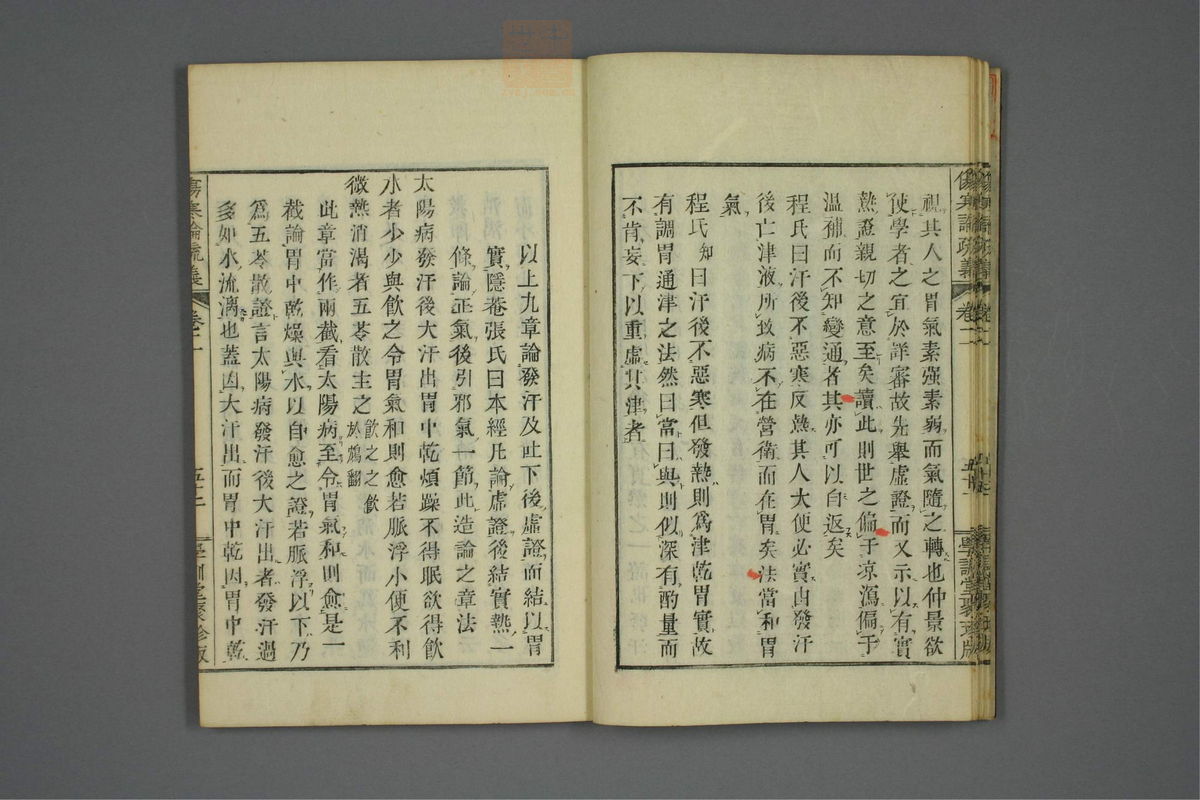 傷寒論疏義　卷二
視其人之胃氣素强素弱而氣隨之轉也仲景欲
使學者之宜於詳審故先舉虛證而又示以有實
熱證親切之意至矣讀此則世之偏于凉瀉偏于
溫補而不知變通者其亦可以自返矣
程氏曰汗後不惡寒反熱其人大便必實由發汗
後亡津液所致病不在營衛而在胃矣法當和胃
氣
程氏知曰汗後不惡寒但發熱則爲津乾胃實故
有調胃通津之法然曰當曰與則似深有酌量而
不肯妄下以重虛其津者
以上九章論發汗及吐下後虛證而結以胃
實隱菴張氏曰本經凡論虛證後結實熱一
條論正氣後引邪氣一節此造論之章法
太陽病發汗後大汗出胃中乾煩躁不得眠欲得飮
水者少少與飮之令胃氣和則愈若脈浮小便不利
微熱消渴者五苓散主之飮之之飮
於鴆翻
此章當作兩截看太陽病至令胃氣和則愈是一
截論胃中乾燥與水以自愈之證若脈浮以下乃
爲五苓散證言太陽病發汗後大汗出者發汗過
多如水流漓也蓋因大汗出而胃中乾因胃中乾
傷寒論疏義　卷二